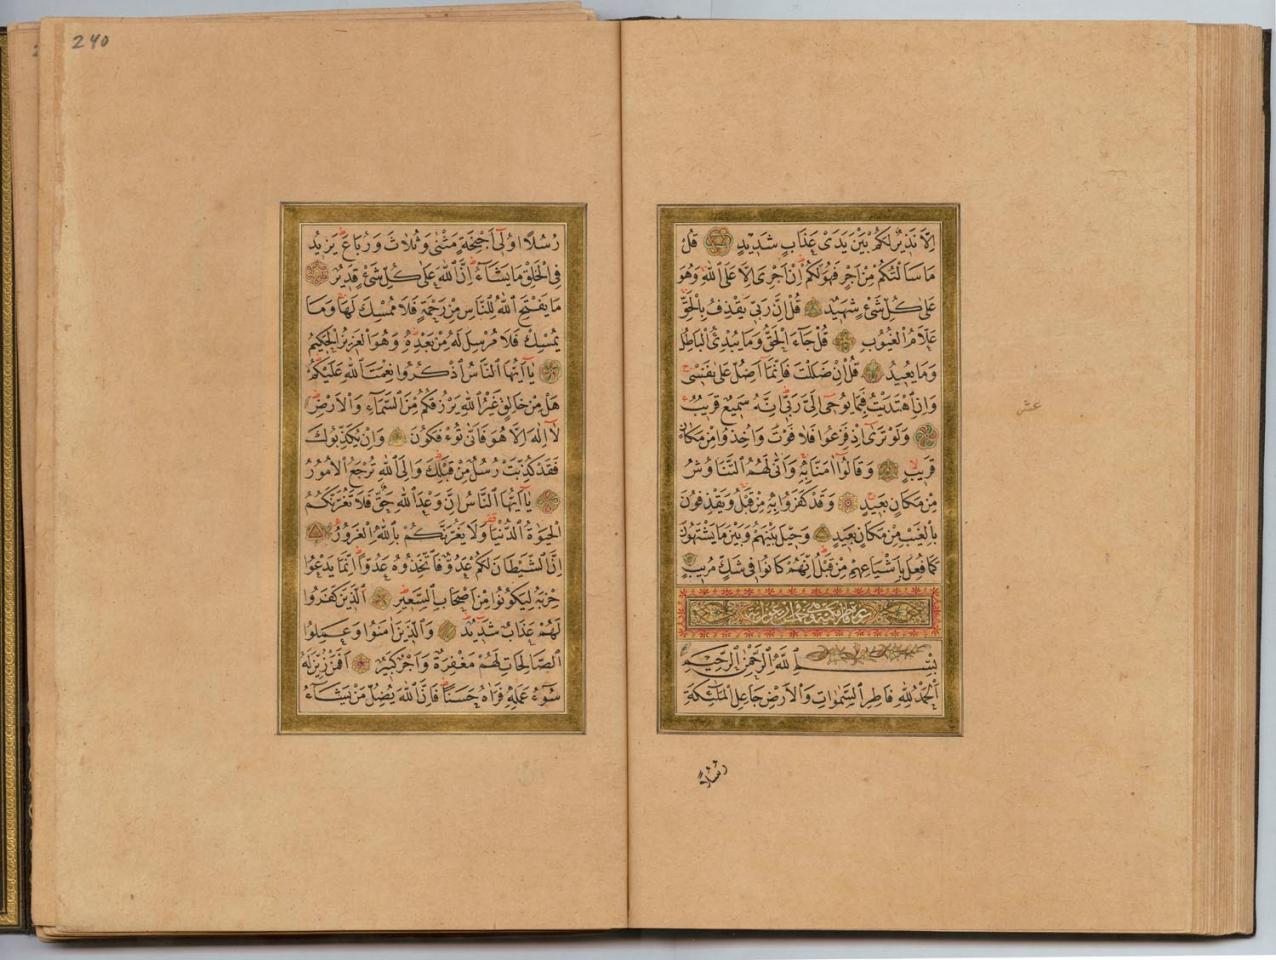 اِلَّا نَذِيرٌ لَكُمْ بَيْنَ يَدَىْ عَذَابٍ شَدِيدٍ قُلْ
مَا سَاَلْتُكُمْ مِنْ اَجْرٍ فَهُوَ لَكُمْ اِنْ اَجْرِىَ اِلَّا عَلَى اللّٰهِ وَهُوَ
عَلٰى كُلِّ شَىْءٍ شَهِيدٌ قُلْ اِنَّ رَبّٖى يَقْذِفُ بِالْحَقِّ
عَلَّامُ الْغُيُوبِ قُلْ جَٓاءَ الْحَقُّ وَمَا يُبْدِئُ الْبَاطِلُ
وَمَا يُعِيدُ قُلْ اِنْ ضَلَلْتُ فَاِنَّمَٓا اَضِلُّ عَلٰى نَفْسٖى
وَاِنِ اهْتَدَيْتُ فَبِمَا يُوحٖى اِلَىَّ رَبّٖى اِنَّهُ سَمِيعٌ قَرِيبٌ
وَلَوْ تَرٰٓى اِذْ فَزِعُوا فَلَا فَوْتَ وَاُخِذُوا مِنْ مَكَانٍ
قَرِيبٍ وَقَالُٓوا اٰمَنَّا بِهٖ وَاَنّٰى لَهُمُ التَّنَاوُشُ
مِنْ مَكَانٍ بَعِيدٍ وَقَدْ كَفَرُوا بِهٖ مِنْ قَبْلُ وَيَقْذِفُونَ
بِالْغَيْبِ مِنْ مَكَانٍ بَعِيدٍ وَحِيلَ بَيْنَهُمْ وَبَيْنَ مَا يَشْتَهُونَ
كَمَا فُعِلَ بِاَشْيَاعِهِمْ مِنْ قَبْلُ اِنَّهُمْ كَانُوا فٖى شَكٍّ مُرِيبٍ
بِسْمِ اللّٰهِ الرَّحْمٰنِ الرَّحِيمِ
اَلْحَمْدُ لِلّٰهِ فَاطِرِ السَّمٰوَاتِ وَالْاَرْضِ جَاعِلِ الْمَلٰٓئِكَةِ
رُسُلًا
عشر
240
رُسُلًا اُولٖٓى اَجْنِحَةٍ مَثْنٰى وَثُلَاثَ وَرُبَاعَ يَزِيدُ
فِى الْخَلْقِ مَا يَشَٓاءُ اِنَّ اللّٰهَ عَلٰى كُلِّ شَىْءٍ قَدِيرٌ
مَا يَفْتَحِ اللّٰهُ لِلنَّاسِ مِنْ رَحْمَةٍ فَلَا مُمْسِكَ لَهَا وَمَا
يُمْسِكْ فَلَا مُرْسِلَ لَهُ مِنْ بَعْدِهٖ وَهُوَ الْعَزِيزُ الْحَكِيمُ
يَٓا اَيُّهَا النَّاسُ اذْكُرُوا نِعْمَتَ اللّٰهِ عَلَيْكُمْ
هَلْ مِنْ خَالِقٍ غَيْرُ اللّٰهِ يَرْزُقُكُمْ مِنَ السَّمَٓاءِ وَالْاَرْضِ
لَٓا اِلٰهَ اِلَّا هُوَ فَاَنّٰى تُؤْفَكُونَ وَاِنْ يُكَذِّبُوكَ
فَقَدْ كُذِّبَتْ رُسُلٌ مِنْ قَبْلِكَ وَاِلَى اللّٰهِ تُرْجَعُ الْاُمُورُ
يَٓا اَيُّهَا النَّاسُ اِنَّ وَعْدَ اللّٰهِ حَقٌّ فَلَا تَغُرَّنَّكُمُ
الْحَيٰوةُ الدُّنْيَا وَلَا يَغُرَّنَّكُمْ بِاللّٰهِ الْغَرُورُ
اِنَّ الشَّيْطَانَ لَكُمْ عَدُوٌّ فَاتَّخِذُوهُ عَدُوًّا اِنَّمَا يَدْعُوا
حِزْبَهُ لِيَكُونُوا مِنْ اَصْحَابِ السَّعِيرِ اَلَّذِينَ كَفَرُوا
لَهُمْ عَذَابٌ شَدِيدٌ وَالَّذِينَ اٰمَنُوا وَعَمِلُوا
الصَّالِحَاتِ لَهُمْ مَغْفِرَةٌ وَاَجْرٌ كَبِيرٌ اَفَمَنْ زُيِّنَ لَهُ
سُٓوءُ عَمَلِهٖ فَرَاٰهُ حَسَنًا فَاِنَّ اللّٰهَ يُضِلُّ مَنْ يَشَٓاءُ